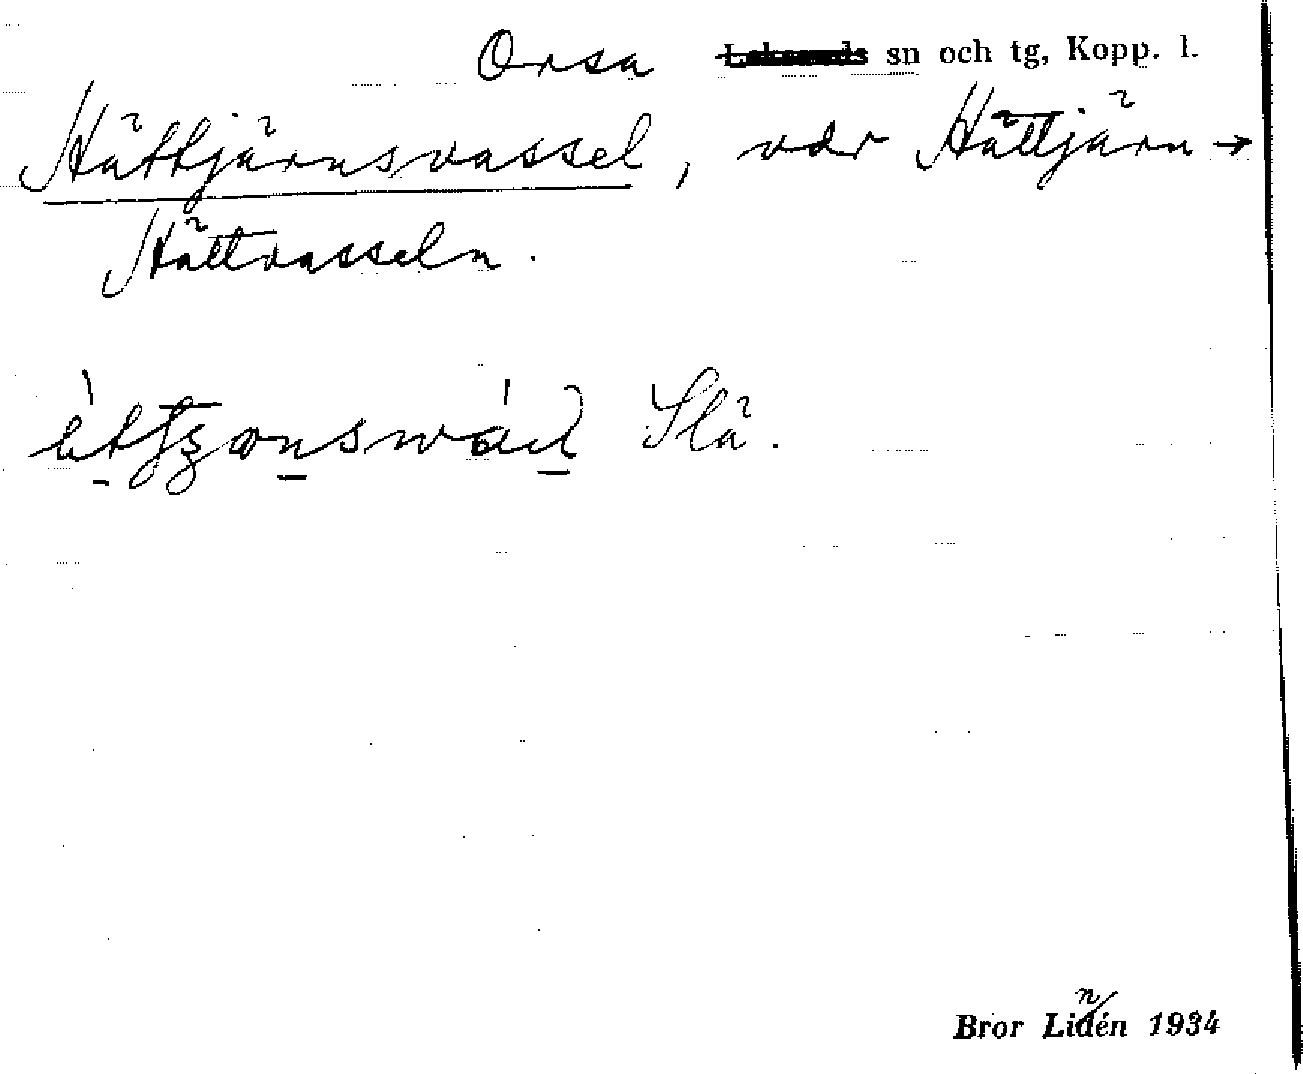 Orsa ~~Leksands~~ sn och tg, Kopp. l.
Hättjärnsvassel, vdr Hättjärn →
Hättvasseln.
Slä.
Bror Lidén 1934